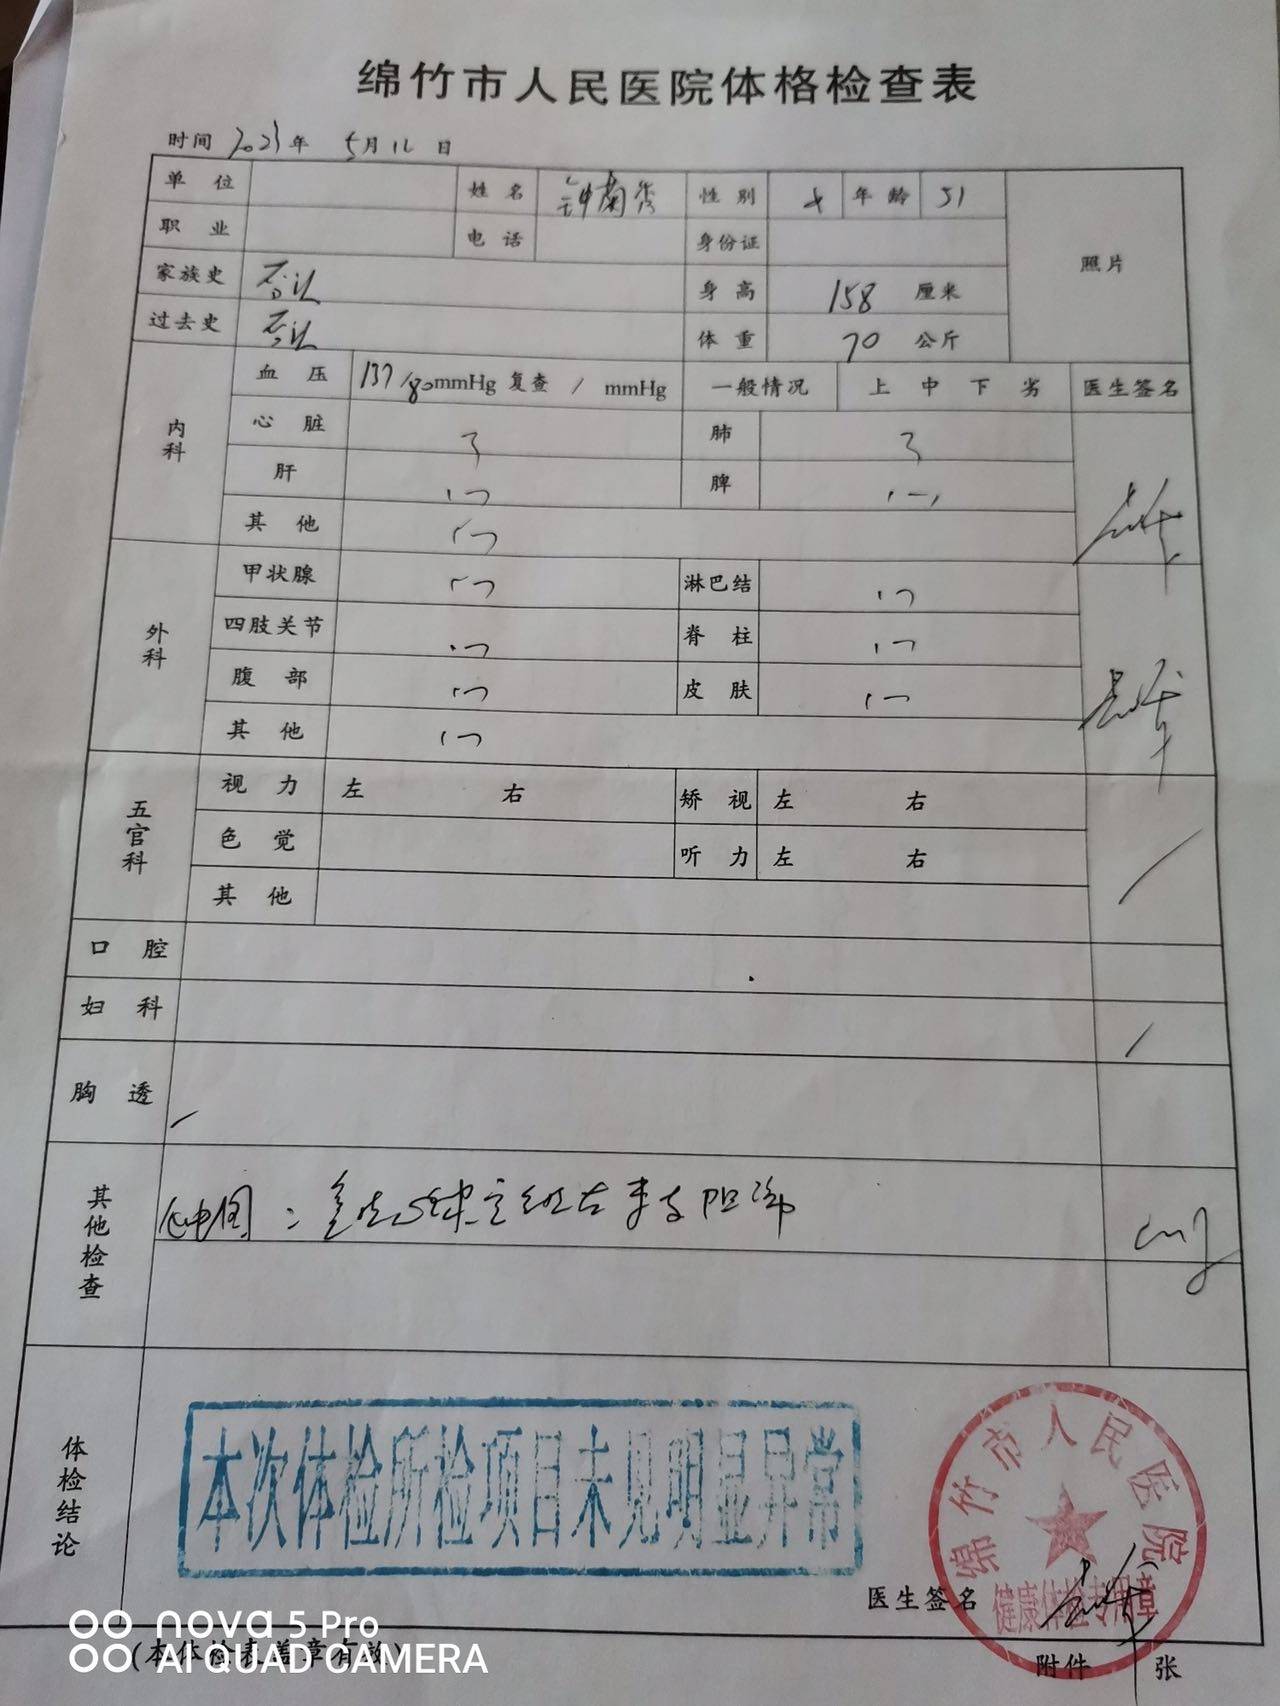 绵竹市人民医院体格检查表
时间 2023年 5月12日
单位 姓名 钟菊秀 性别 女 年龄 51
照片
职业 电话 身份证
家族史 否认 身高 158 厘米
过去史 否认 体重 70 公斤
内科 血压 137/80mmHg 复查 / mmHg 一般情况 上 中 下 劣 医生签名
心脏 肺
肝 (-) 脾 (-)
其他 (-)
外科 甲状腺 (-) 淋巴结 (-)
四肢关节 (-) 脊柱 (-)
腹部 (-) 皮肤 (-)
其他 (-)
五官科 视力 左 右 矫视 左 右
色觉 听力 左 右
其他
口腔
妇科
胸透
其他检查 心电图: 窦性心律 完全右束支阻滞
体检结论
本次体检所检项目未见明显异常
绵竹市人民医院
健康体检专用章
医生签名
(本体检表盖章有效)
附件 张
nova 5 Pro
AI QUAD CAMERA